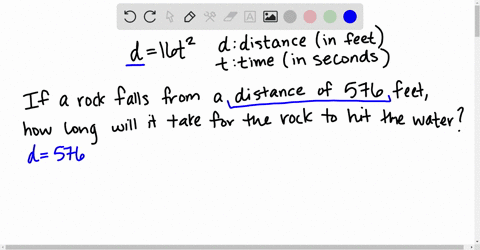 d = 16t² d: distance (in feet)
t: time (in seconds)
If a rock falls from a distance of 576 feet,
how long will it take for the rock to hit the water?
d = 576